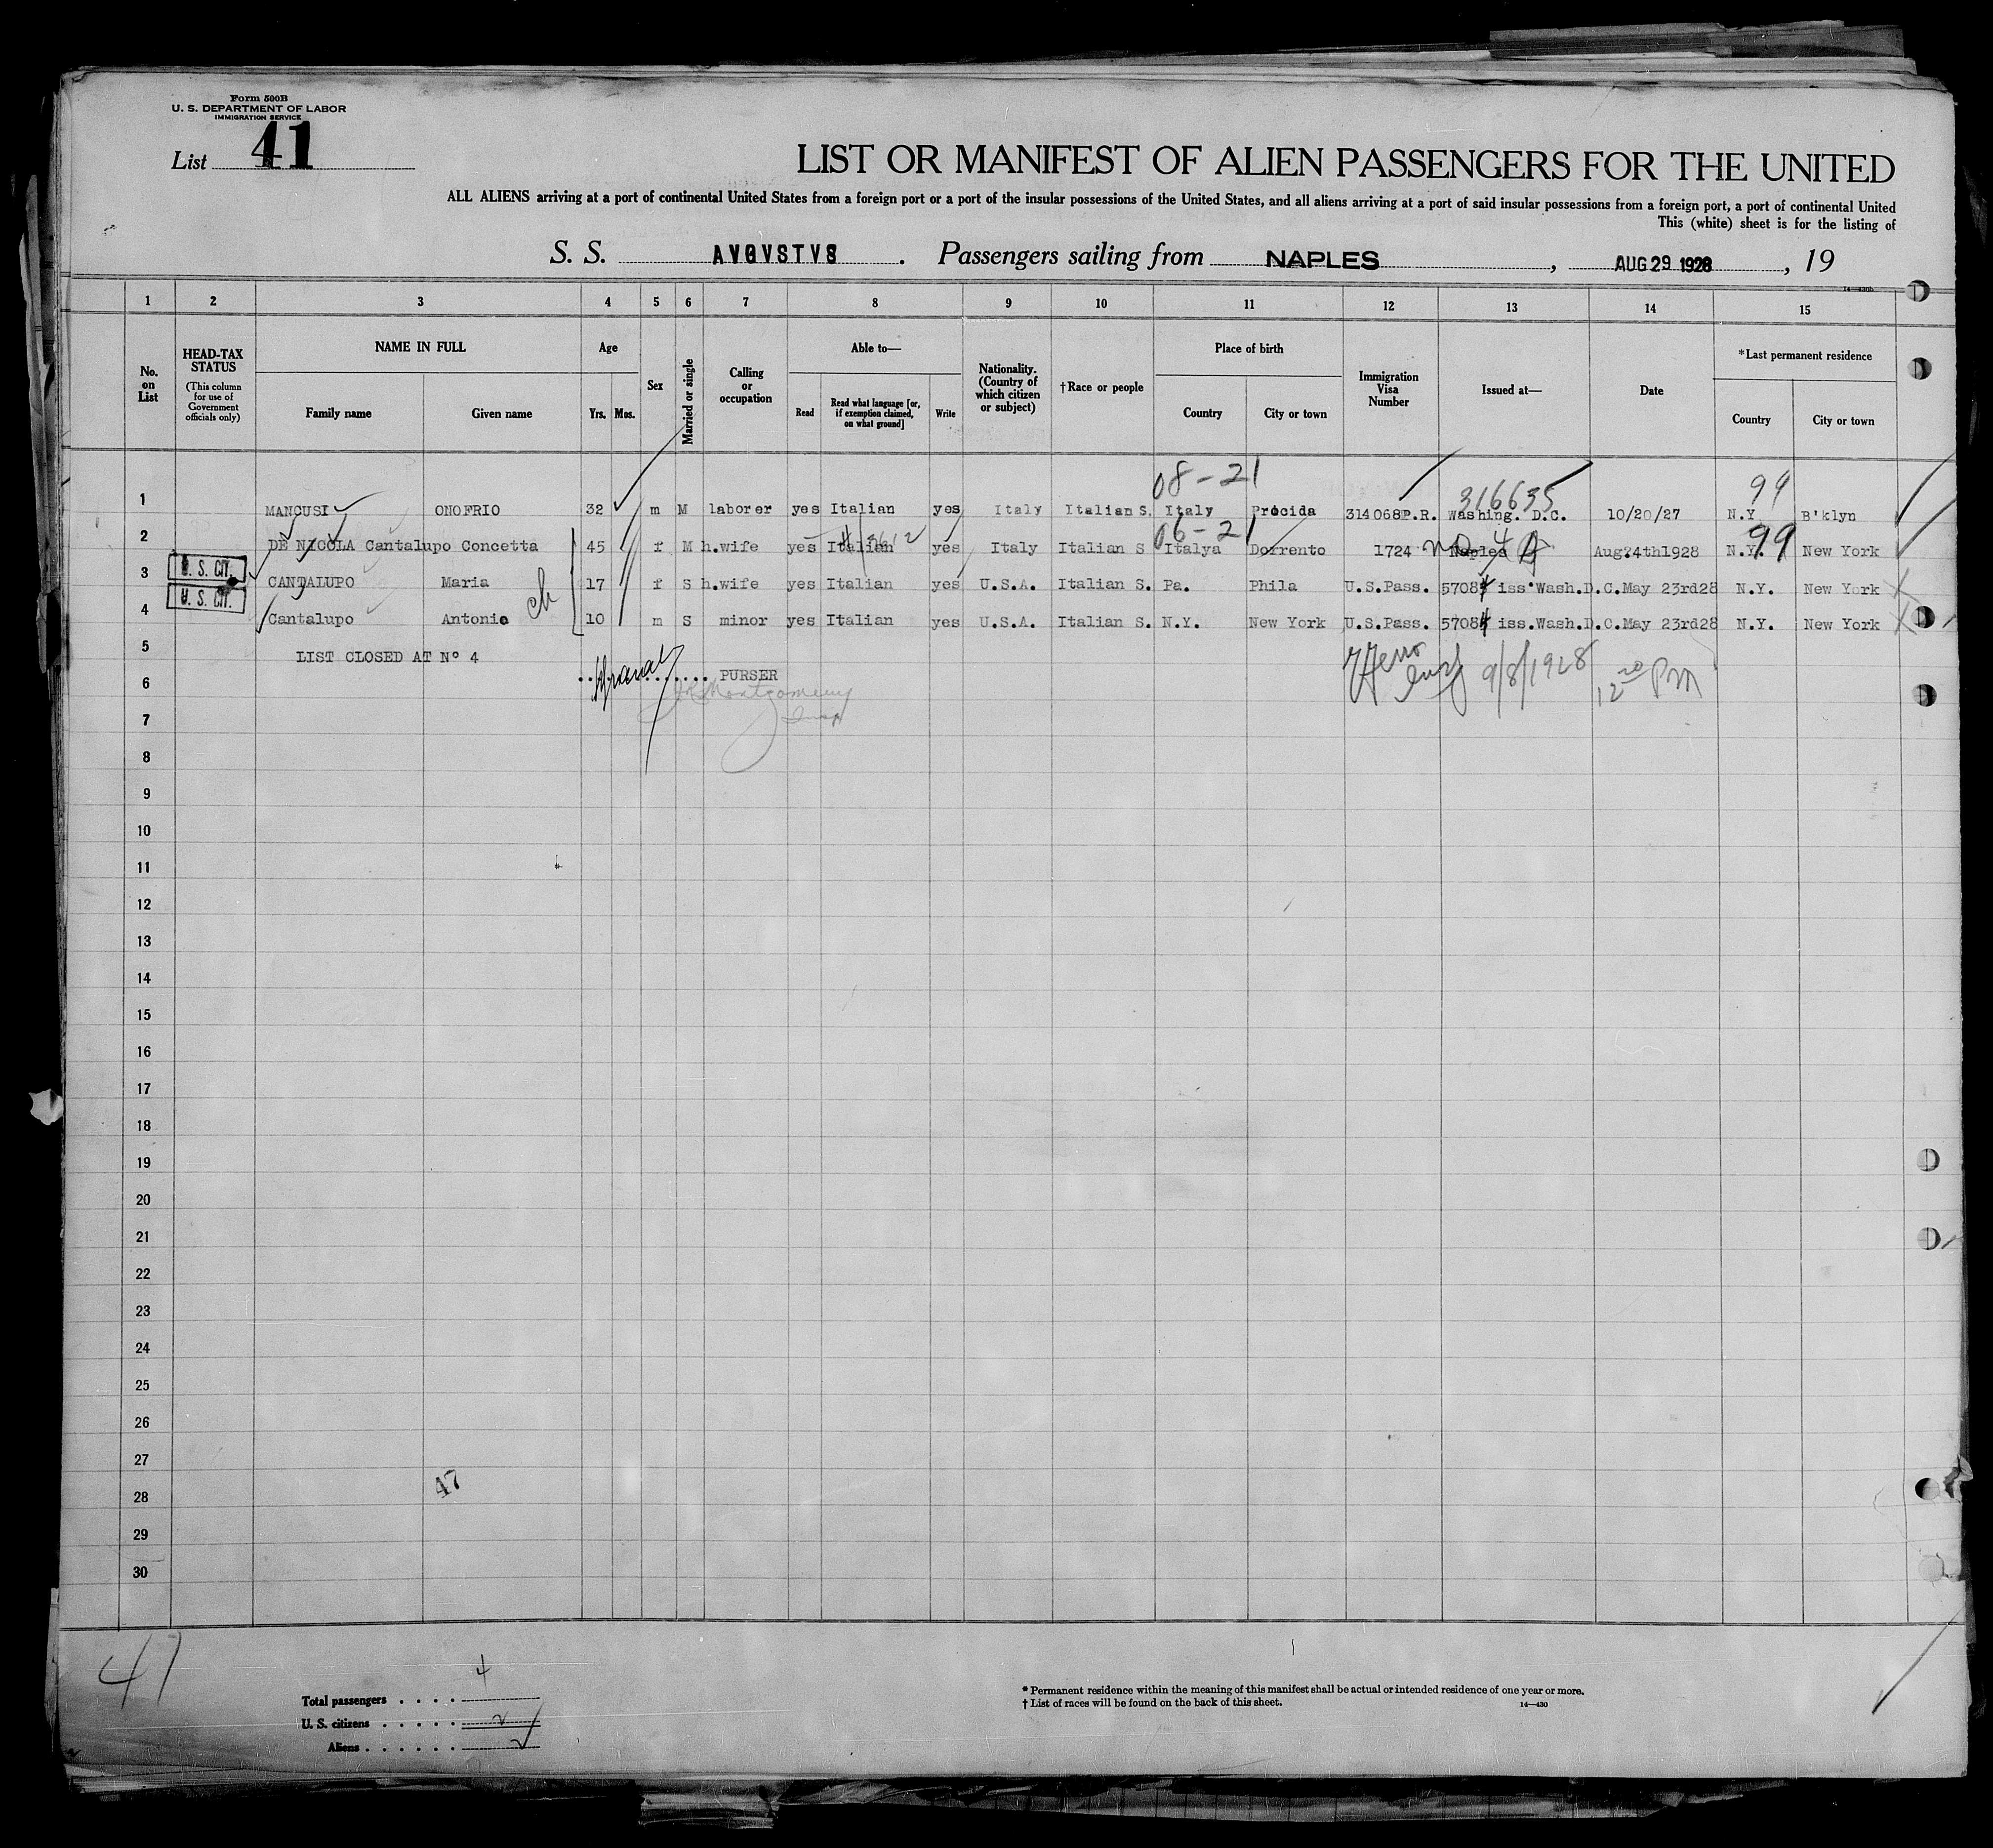 Form 500B
U. S. DEPARTMENT OF LABOR
IMMIGRATION SERVICE
List 41
LIST OR MANIFEST OF ALIEN PASSENGERS FOR THE UNITED
ALL ALIENS arriving at a port of continental United States from a foreign port or a port of the insular possessions of the United States, and all aliens arriving at a port of said insular possessions from a foreign port, a port of continental United
This (white) sheet is for the listing of
S. S. AVGVSTVS . Passengers sailing from NAPLES , AUG 29 1928 , 19
1 2 3 4 5 6 7 8 9 10 11 12 13 14 15
No. on List
HEAD-TAX STATUS
(This column for use of Government officials only)
NAME IN FULL
Family name Given name
Age
Yrs. Mos.
Sex
Married or single
Calling or occupation
Able to—
Read
Read what language [or, if exemption claimed, on what ground]
Write
Nationality. (Country of which citizen or subject)
†Race or people
Place of birth
Country City or town
Immigration Visa Number
Issued at—
Date
*Last permanent residence
Country City or town
08-21 316635 99
1 MANCUSI ONOFRIO 32 m M laborer yes Italian yes Italy Italian S. Italy Procida 314068P.R. Washing. D.C. 10/20/27 N.Y B'klyn
06-21 99
2 DE NICOLA Cantalupo Concetta 45 f M h.wife yes Italian yes Italy Italian S Italya Dorrento 1724 Naples Aug?4th1928 N.Y. New York
U. S. CIT.
3 CANTALUPO Maria 17 f S h.wife yes Italian yes U.S.A. Italian S. Pa. Phila U.S.Pass. 57084 iss Wash.D.C.May 23rd28 N.Y. New York
U. S. CIT.
4 Cantalupo Antonio 10 m S minor yes Italian yes U.S.A. Italian S. N.Y. New York U.S.Pass. 57084 iss.Wash.D.C.May 23rd28 N.Y. New York
5 LIST CLOSED AT Nº 4
PURSER
JR Montgomery
Insp
9/8/1928 12 20 PM
6
7
8
9
10
11
12
13
14
15
16
17
18
19
20
21
22
23
24
25
26
27
28
29
30
47
47
Total passengers . . . . 4
U. S. citizens . . . . . 2
Aliens . . . . . . 2
* Permanent residence within the meaning of this manifest shall be actual or intended residence of one year or more.
† List of races will be found on the back of this sheet.
14—430